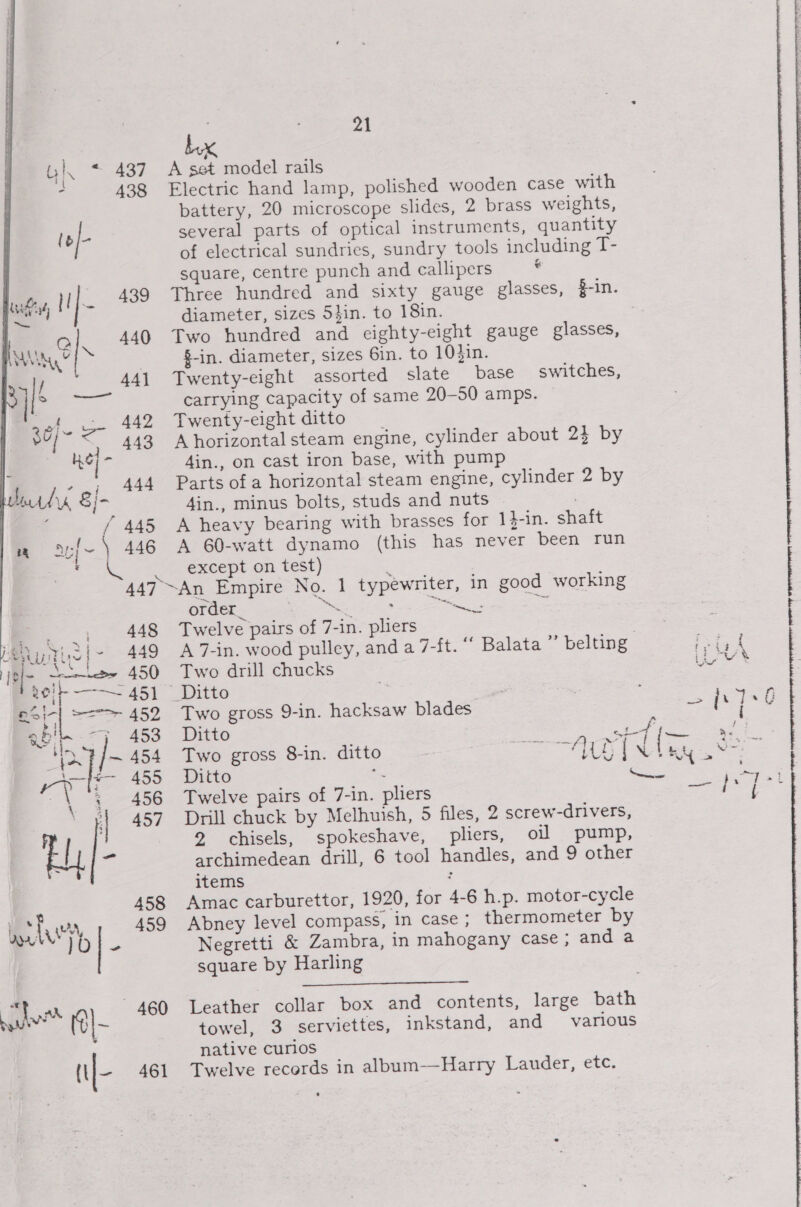 21
box
4/- 437 A set model rails
438 Electric hand lamp, polished wooden case with
battery, 20 microscope slides, 2 brass weights,
several parts of optical instruments, quantity
10/- of electrical sundries, sundry tools including T-
square, centre punch and callipers
11/- 439 Three hundred and sixty gauge glasses, ⅝-in.
diameter, sizes 5½in. to 18in.
440 Two hundred and eighty-eight gauge glasses,
⅝-in. diameter, sizes 6in. to 10½in.
441 Twenty-eight assorted slate base switches,
37/6 carrying capacity of same 20-50 amps.
442 Twenty-eight ditto
30/- 443 A horizontal steam engine, cylinder about 2½ by
40/- 4in., on cast iron base, with pump
444 Parts of a horizontal steam engine, cylinder 2 by
8/- 4in., minus bolts, studs and nuts
445 A heavy bearing with brasses for 1½-in. shaft
446 A 60-watt dynamo (this has never been run
except on test)
447 An Empire No. 1 typewriter, in good working
order
448 Twelve pairs of 7-in. pliers
449 A 7-in. wood pulley, and a 7-ft. “ Balata ” belting
450 Two drill chucks
451 Ditto
452 Two gross 9-in. hacksaw blades
453 Ditto
454 Two gross 8-in. ditto
455 Ditto
456 Twelve pairs of 7-in. pliers
457 Drill chuck by Melhuish, 5 files, 2 screw-drivers,
2 chisels, spokeshave, pliers, oil pump,
archimedean drill, 6 tool handles, and 9 other
items
458 Amac carburettor, 1920, for 4-6 h.p. motor-cycle
459 Abney level compass, in case ; thermometer by
Negretti & Zambra, in mahogany case ; and a
square by Harling
460 Leather collar box and contents, large bath
towel, 3 serviettes, inkstand, and various
native curios
11/- 461 Twelve records in album—Harry Lauder, etc.